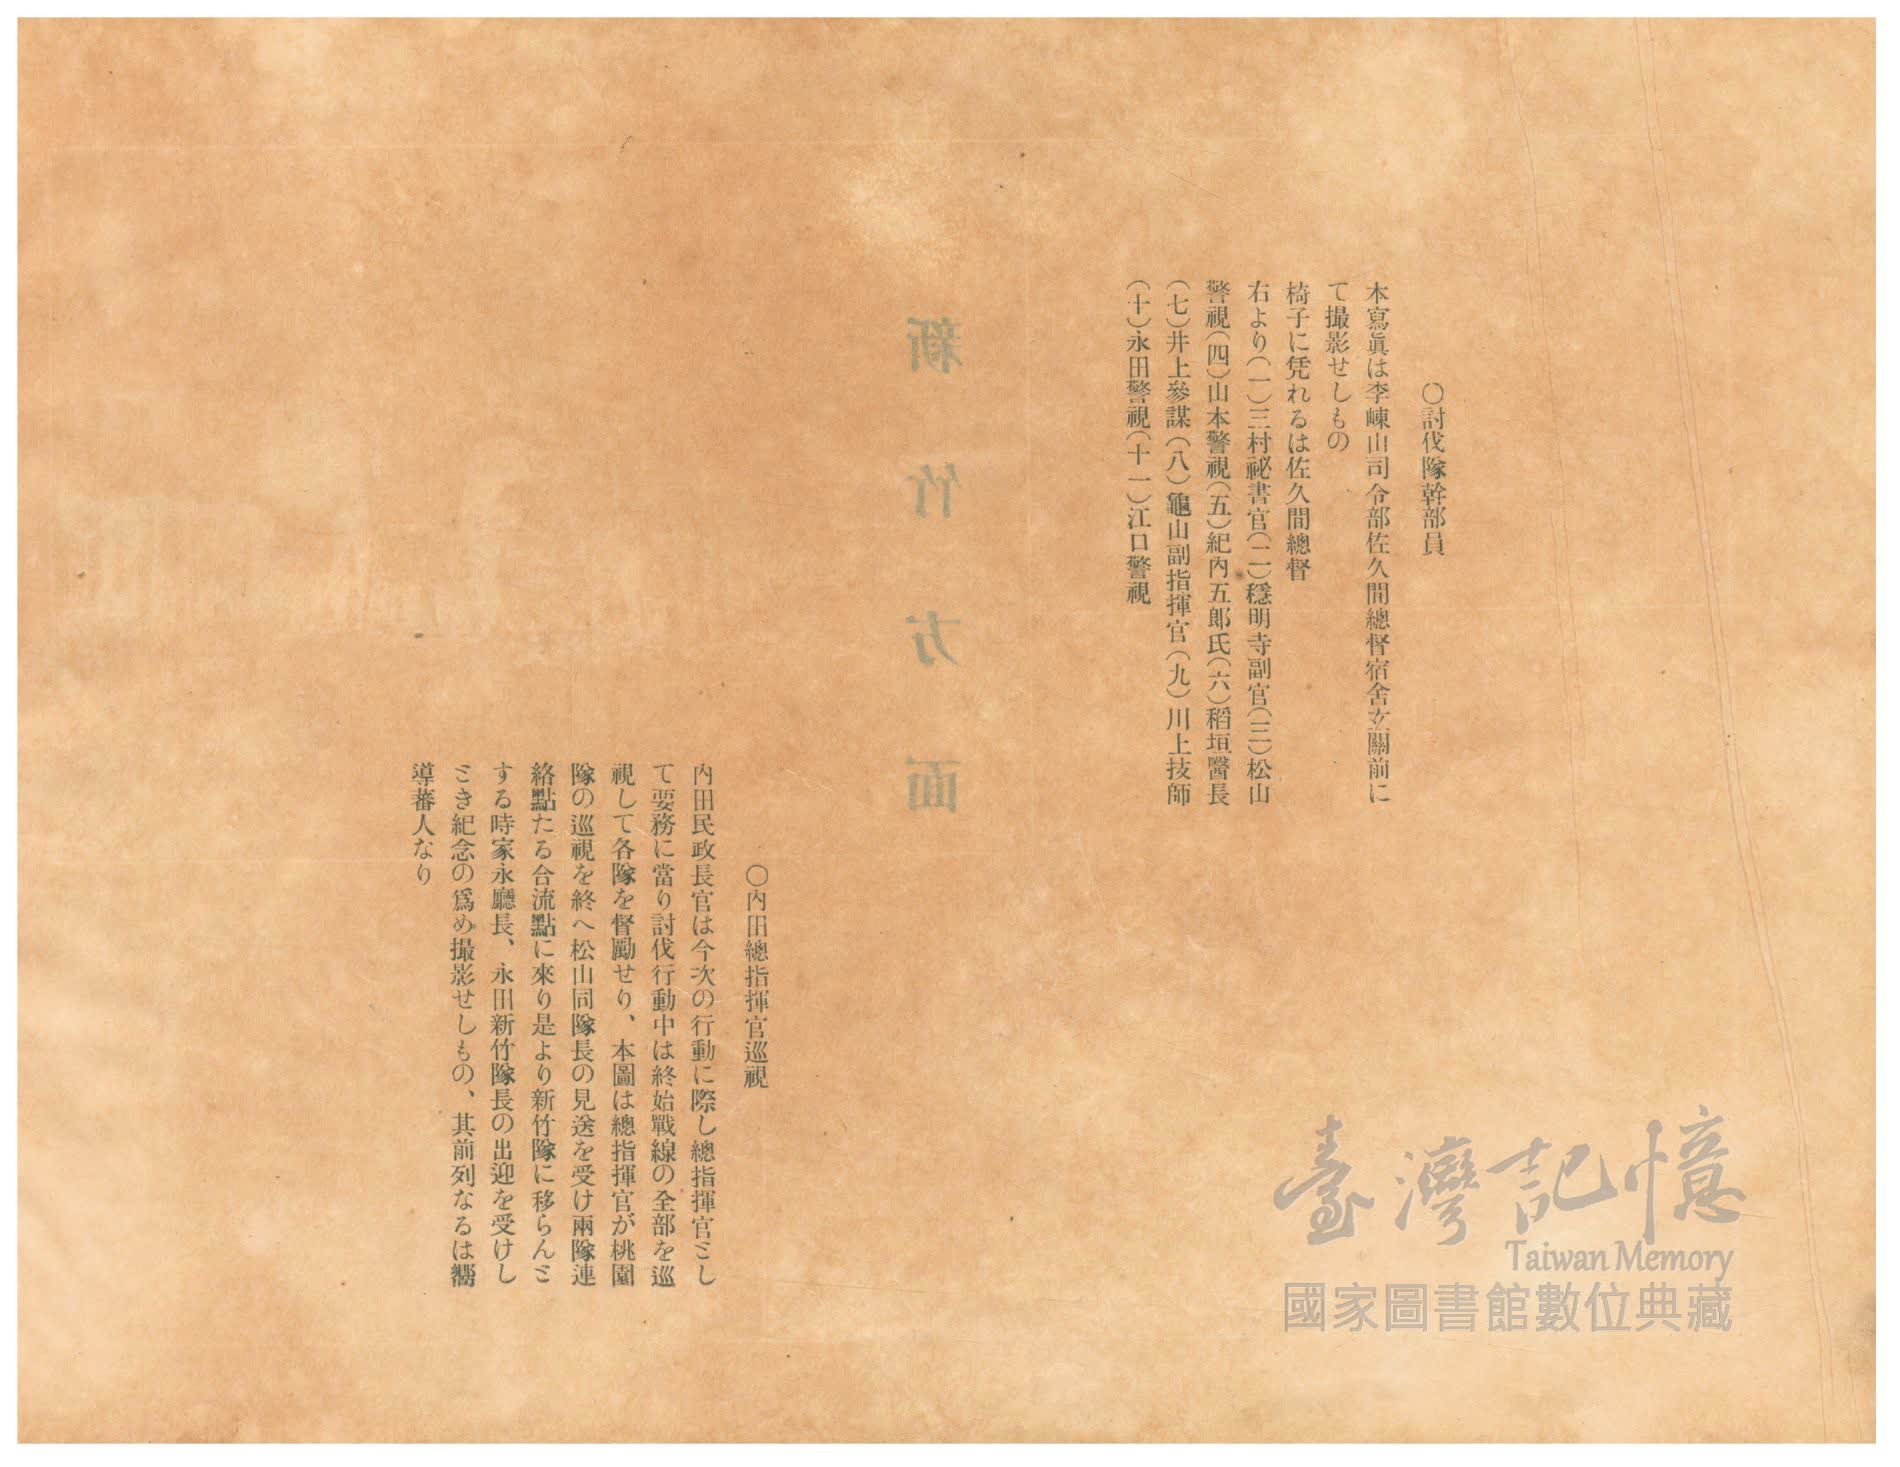 〇討伐隊幹部員
本寫眞は李崠山司令部佐久間總督宿舍玄關前に
て撮影せしもの
椅子に凭れるは佐久間總督
右より(一)三村祕書官(二)穩明寺副官(三)松山
警視(四)山本警視(五)紀内五郞氏(六)稻垣醫長
(七)井上參謀(八)龜山副指揮官(九)川上技師
(十)永田警視(十一)江口警視
新竹方面
〇内田總指揮官巡視
内田民政長官は今次の行動に際し總指揮官ミし
て要務に當り討伐行動中は終始戰線の全部を巡
視して各隊を督勵せり、本圖は總指揮官が桃園
隊の巡視を終へ松山同隊長の見送を受け兩隊連
絡點たる合流點に來り是より新竹隊に移らんミ
する時家永廳長、永田新竹隊長の出迎を受けし
ミき紀念の爲め撮影せしもの、其前列なるは嚮
導蕃人なり
臺灣記憶
Taiwan Memory
國家圖書館數位典藏